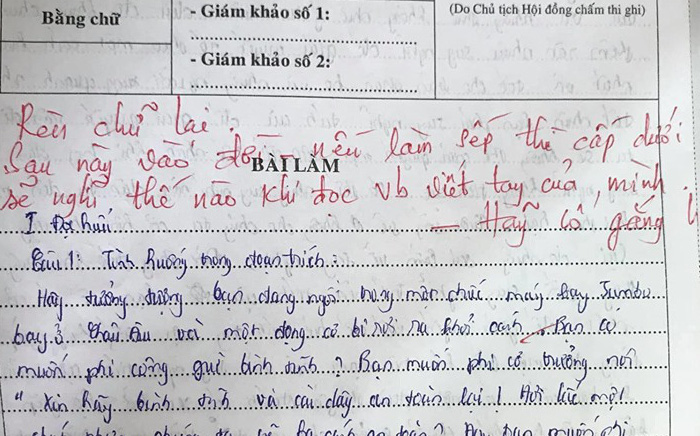 Bằng chữ
- Giám khảo số 1:
- Giám khảo số 2:
(Do Chủ tịch Hội đồng chấm thi ghi)
Rèn chữ lại.
Sau này vào đời, nếu làm sếp thì cấp dưới
BÀI LÀM
sẽ nghĩ thế nào khi đọc vb viết tay của mình.
- Hãy cố gắng
I. Đọc hiểu
Câu 1: Tình huống trong đoạn trích:
Hãy tưởng tượng bạn đang ngồi trong một chiếc máy bay Jumbo
bay ở Châu Âu và một động cơ bị rơi ra khỏi cánh. Bạn có
muốn phi công giữ bình tĩnh? Bạn muốn phi cơ trưởng nói
" Xin hãy bình tĩnh và cài dây an toàn lại! Hơi lắc một